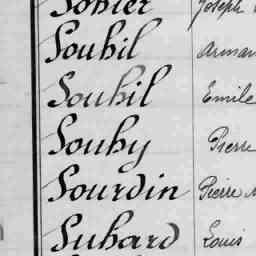 Sohier Joseph
Souhil Arman
Souhil Emile
Souhy Pierre
Sourdin Pierre
Suhard Louis